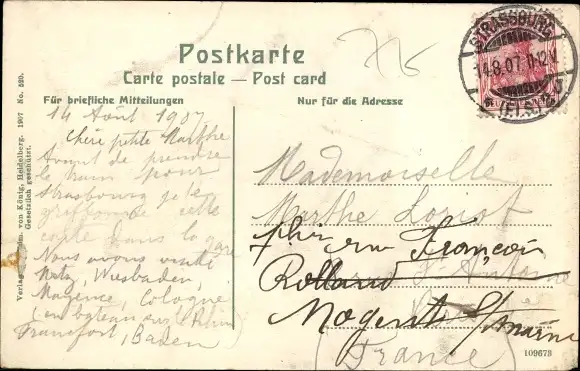 Postkarte
Carte postale — Post card
Für briefliche Mitteilungen
Nur für die Adresse
STRASSBURG
14.8.07
(ELS.)
14 Août 1907
Chère petite Marthe
Avant de prendre
le train pour
Strasbourg je te
griffonne cette
carte dans la gare
Nous avons visité
Metz, Wiesbaden,
Mayence, Cologne
(en bateau sur le Rhin)
Francfort, Baden
Mademoiselle
Marthe
rue François
Rolland
Nogent s/ Marne
(France)
Verlag von König, Heidelberg. 1907 No. 520.
Gesetzlich geschützt.
109673